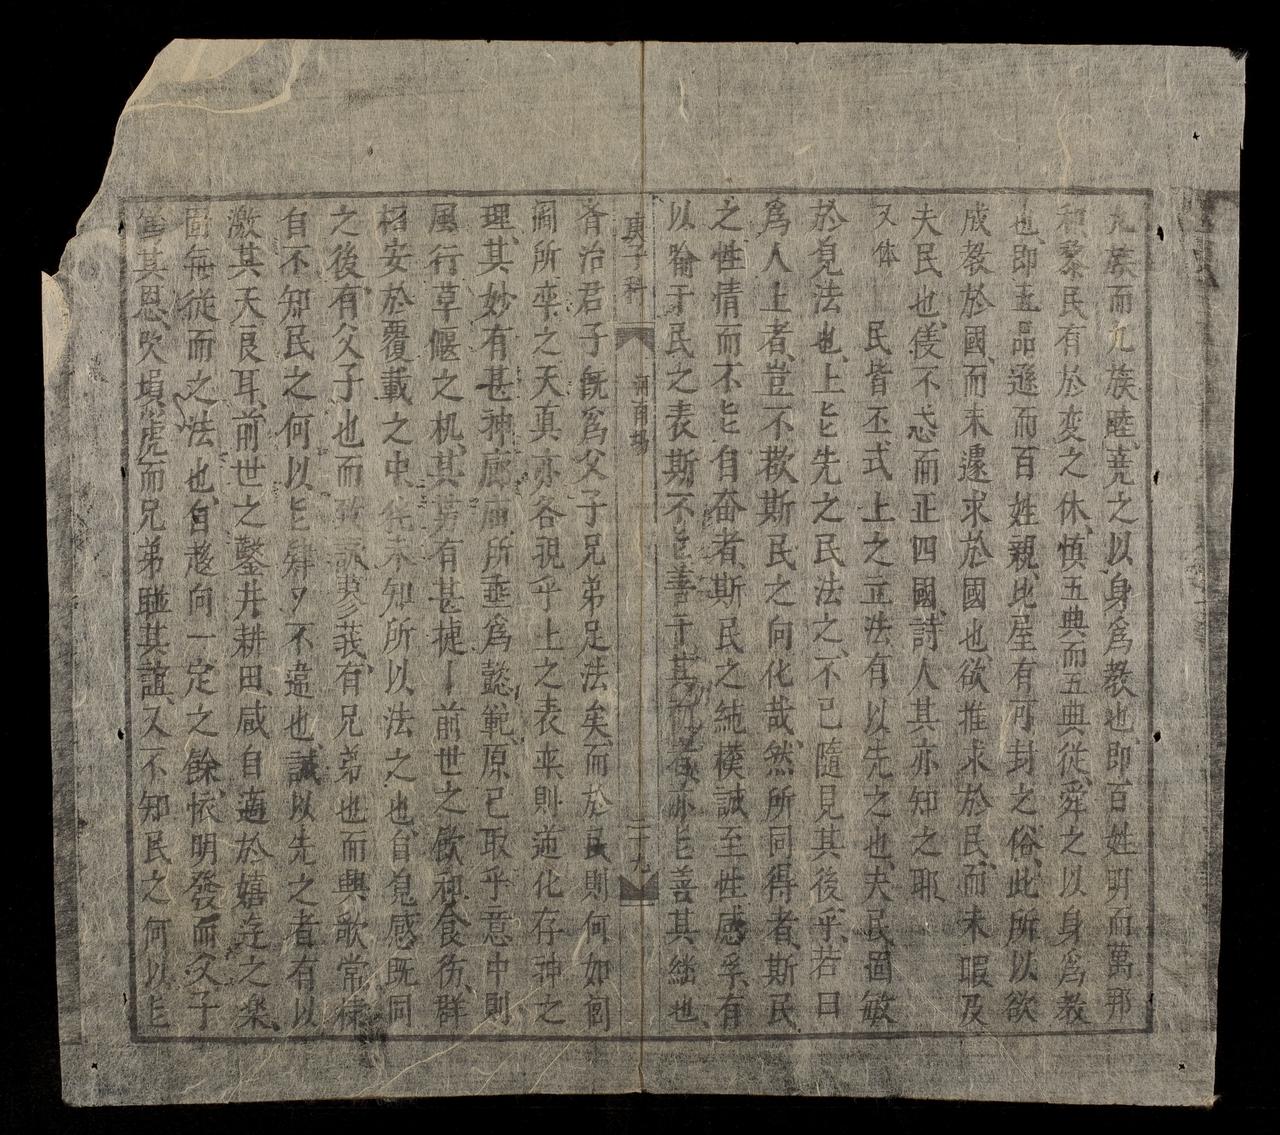 九族而九族睦堯之以身爲教也即百姓明而萬那
和黎民有於变之休慎五典而五典從舜之以身爲教
也即五品遜而百姓親比屋有可封之俗此所以欲
成教於國而未遽求於國也欲推求於民而未暇及
夫民也儀不忒而正四國詩人其亦知之耶
又体　民皆丕式上之立法有以先之也夫民固敏
於見法也上𠤎先之民法之不已隨見其後乎若曰
爲人上者豈不欲斯民之向化哉然所同得者斯民
之性情而不𠤎自奋者斯民之純樸誠至性感孚有
以喻于民之表斯不𠤎善于其亦𠤎善其継也
庚子科　河南場　二十九
斉治君子既爲父子兄弟足法矣而於民則何如閭
阎所率之天真亦各視乎上之表率則逆化存神之
理其妙有甚神廊庙所垂爲懿範原已取乎意中則
風行草偃之机其有甚捷丨前世之飲和食伤群
相安於覆載之中未知所以法之也自覓感既同
之後有父子也而詠蓼莪有兄弟也而興歌常棣
自不知民之何以𠤎肆夕不違也誠以先之者有以
激其天良耳前世之鑿井耕田咸自適於嬉遊之樂
固無從而之法也自趍向一定之餘依明發而父子
其恩吹塤虎而兄弟聮其誼又不知民之何以𠤎